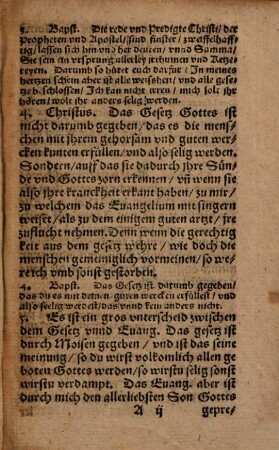 3. Bapst. Die rede vnd Predigte Christi/ der
Propheten vnd Apostel/ sind finster/ zweiffelhaff-
tig/ lassen sich hin vnd her deuten/ vnnd Summa/
Sie sein ein vrsprung allerley irthumen vnd Ketze-
reyen. Darumb so hütet euch darfur/ In meines
hertzen schein aber ist alle weisheit/ vnd alle gese-
tze b.schlossen/ Ich kan nicht irren/ mich solt ihr
hören/ wolt ihr anders selig werden.
4. Christus. Das Gesetz Gottes ist
nicht darumb gegeben/ das es die men-
schen mit ihrem gehorsam vnd guten wer-
cken kunten erfüllen/ vnd also selig werden.
Sondern/ auff das sie dadurch ihre Sün-
de vnd Gottes zorn erkennen/ vnd wenn sie
also ihre kranckheit erkant haben/ zu mir/
zu welchem das Euangelium mit fingern
weiset/ als zu dem einigem guten artzt/ ire
zuflucht nehmen. Denn wenn die gerechtig
keit aus dem gesetz wehre/ wie doch die
menschen gemeiniglich vormeinen/ so we-
re ich vmb sonst gestorben.
4. Bapst. Das Gesetz ist darumb gegeben/
das du es mit deinen guten wercken erfüllest/ vnd
also seelig werdest/ das vnnd kein anders nicht.
5. Es ist ein gros vnterscheid zwischen
dem Gesetz vnnd Euang. Das gesetz ist
durch Moisen gegeben/ vnd ist das seine
meinung/ so du wirst volkomlich allen ge
boten Gottes werden/ so wirstu selig sonst
wirstu verdampt. Das Euang. aber ist
durch mich den allerliebsten Son Gottes
A ij gepre-